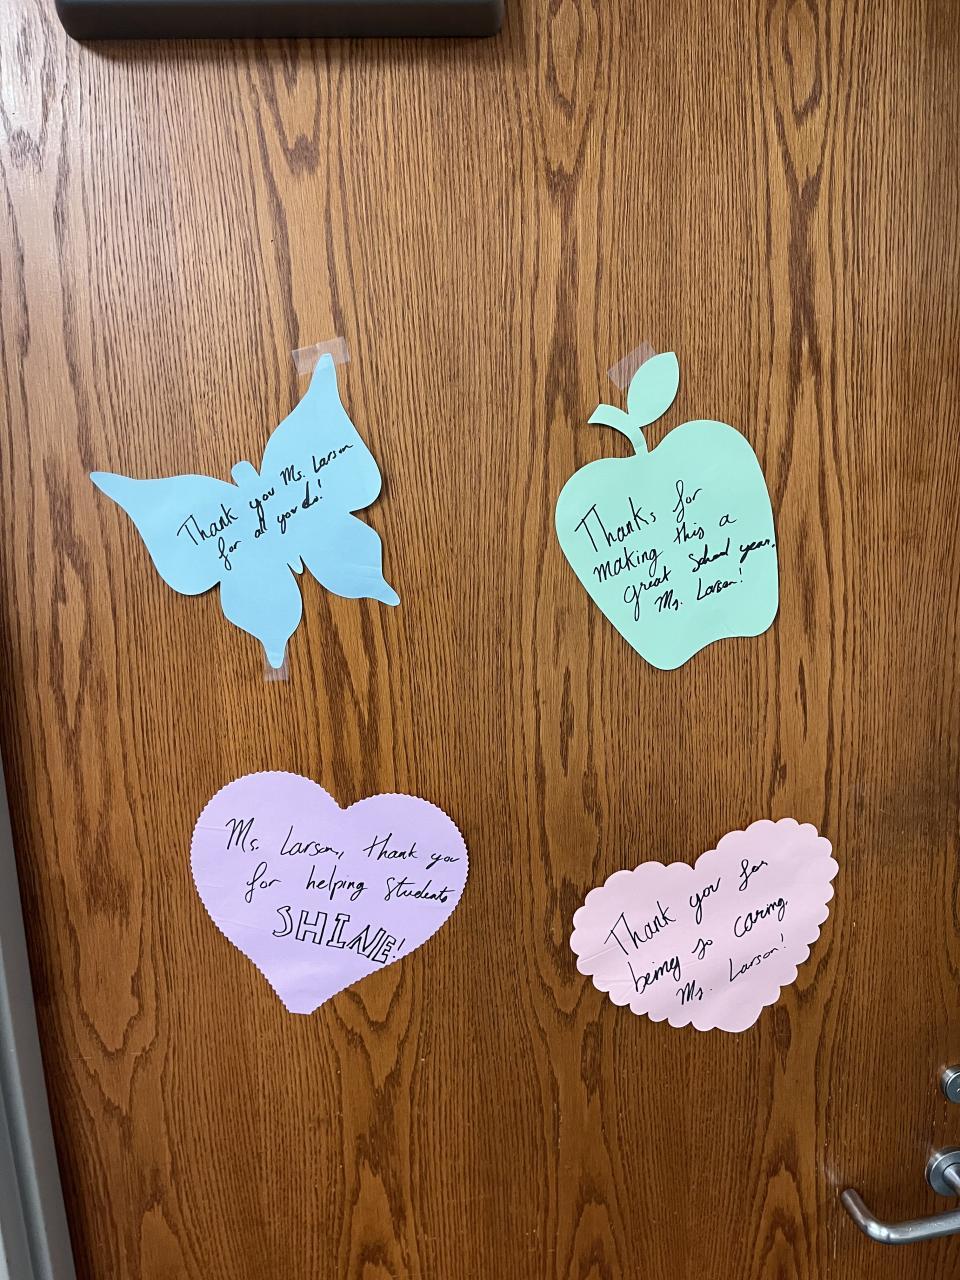 Thank you Ms. Larson
for all you do!
Thanks for
making this a
great school year,
Ms. Larson!
Ms. Larson, thank you
for helping students
SHINE!
Thank you for
being so caring,
Ms. Larson!